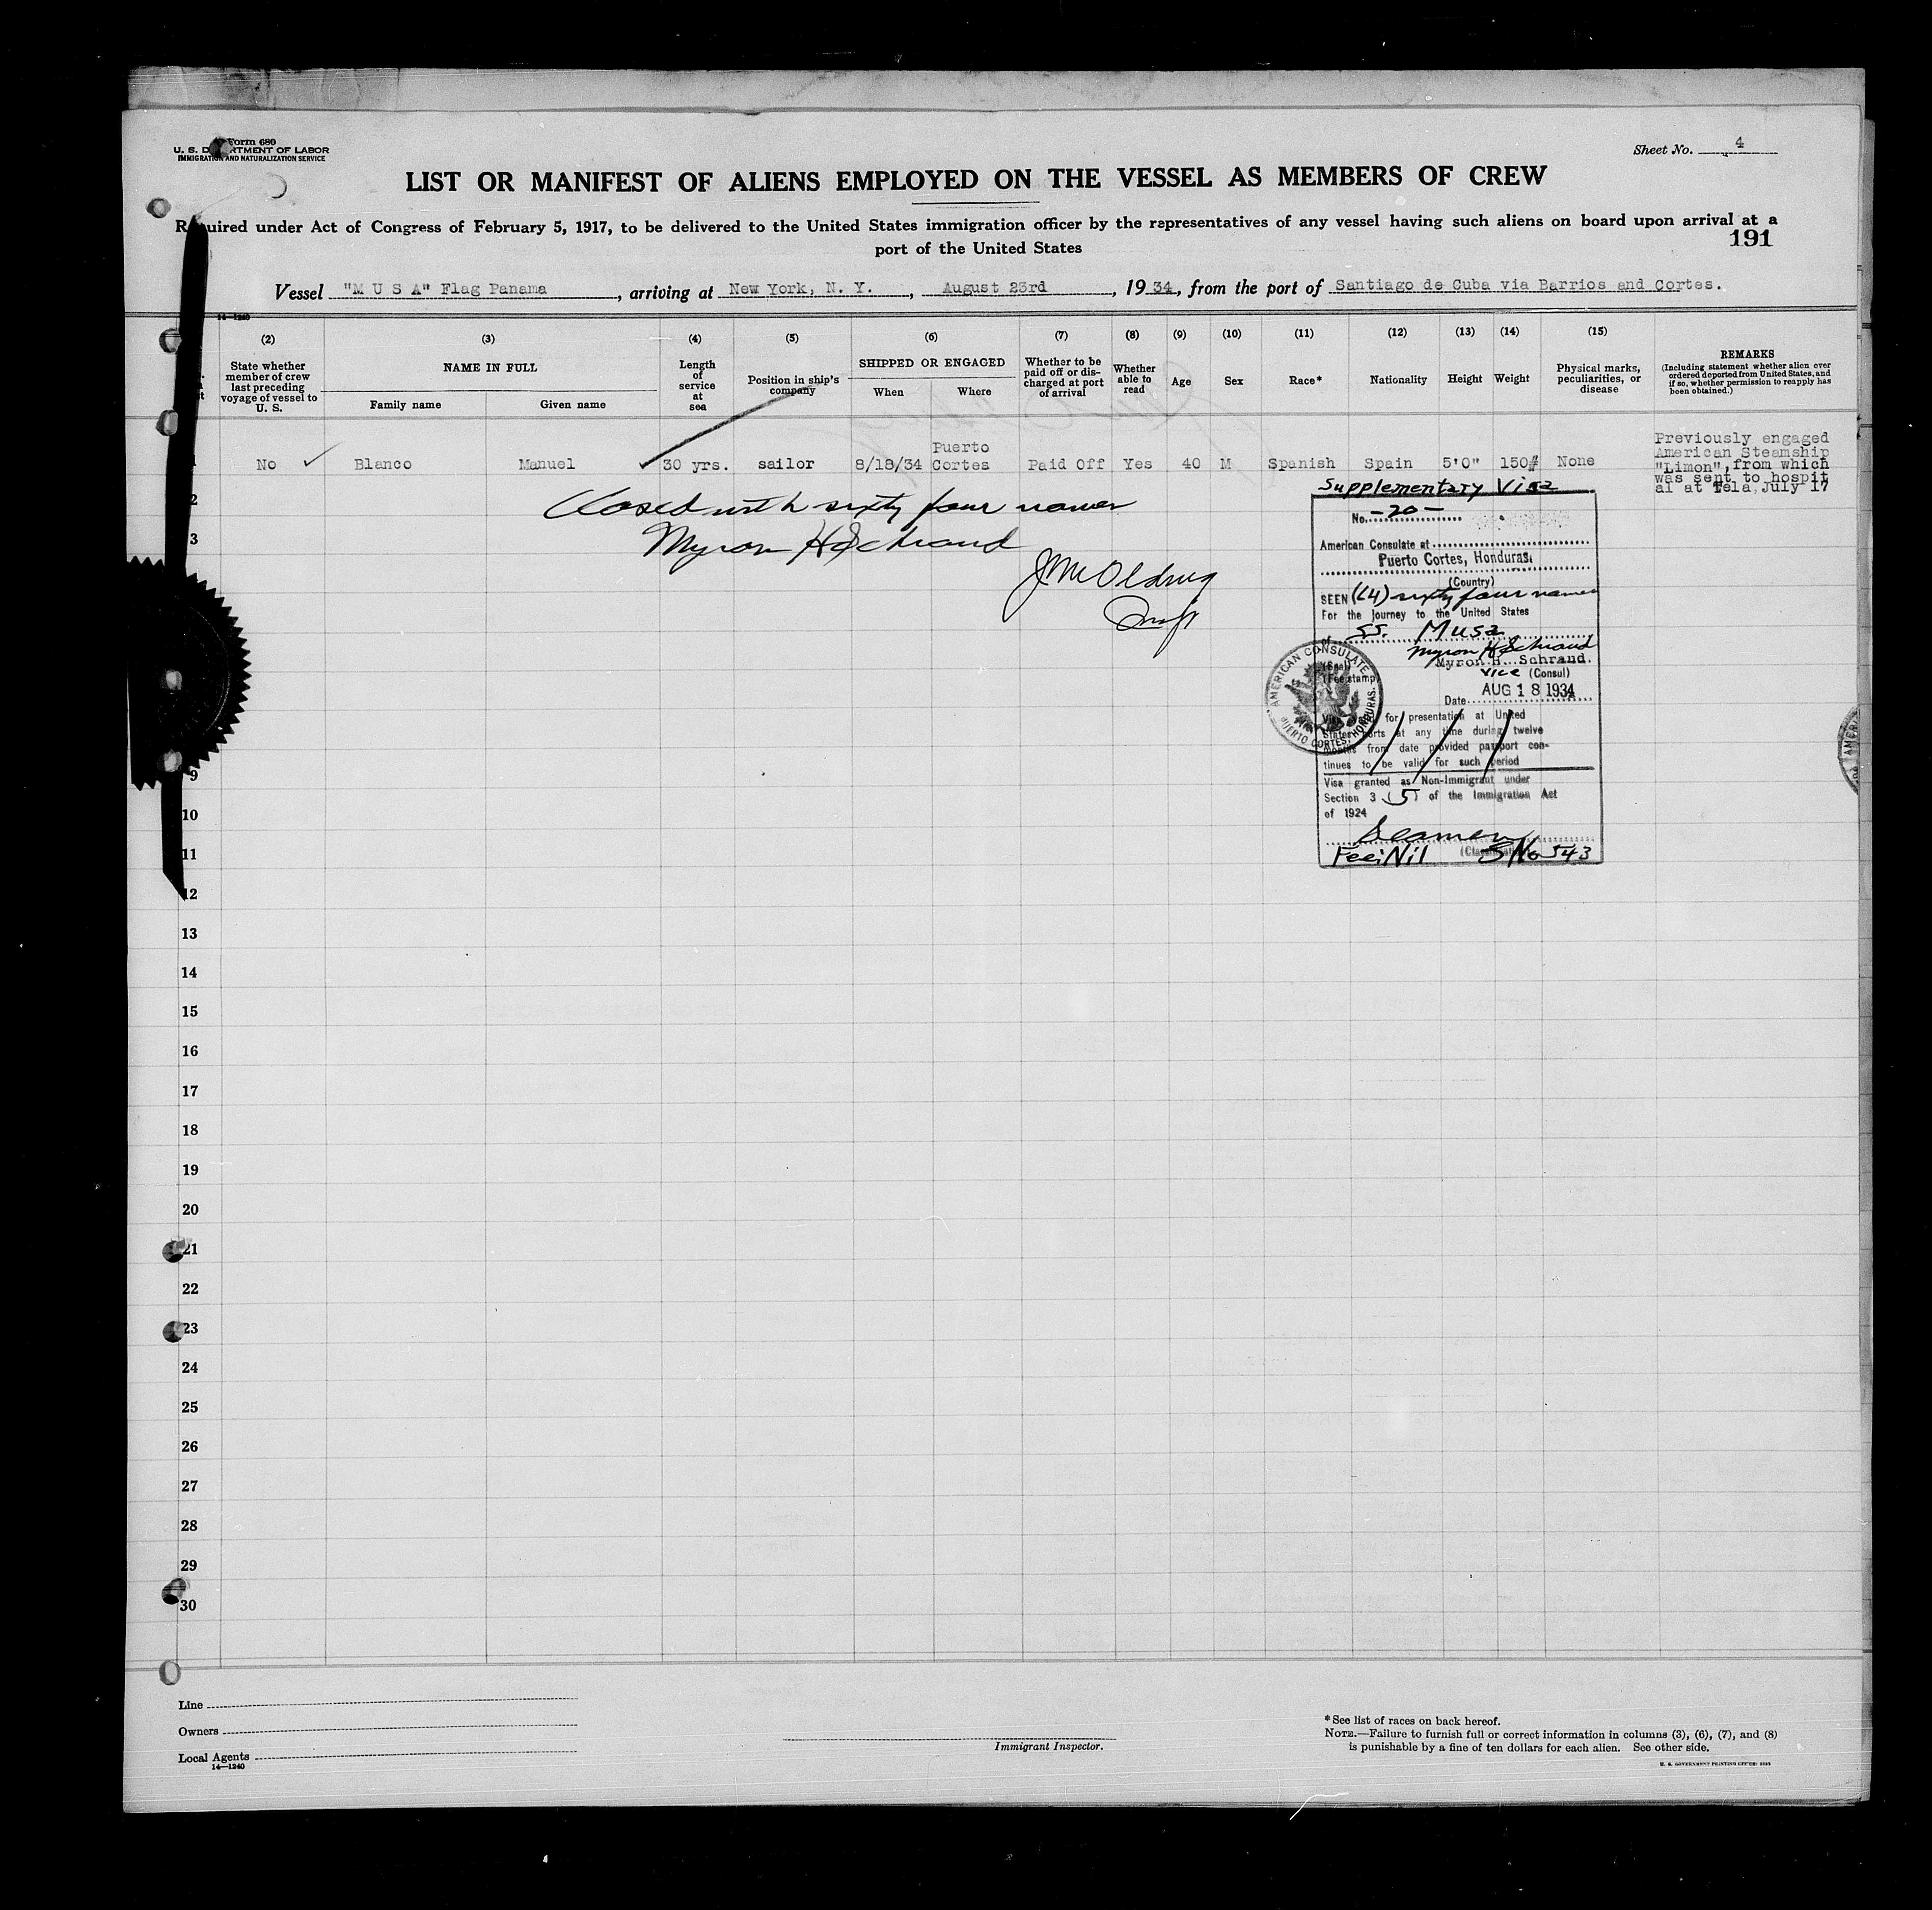 Form 680
U. S. DEPARTMENT OF LABOR
IMMIGRATION AND NATURALIZATION SERVICE
Sheet No. 4
LIST OR MANIFEST OF ALIENS EMPLOYED ON THE VESSEL AS MEMBERS OF CREW
Required under Act of Congress of February 5, 1917, to be delivered to the United States immigration officer by the representatives of any vessel having such aliens on board upon arrival at a
port of the United States
191
Vessel "M U S A" Flag Panama, arriving at New York, N. Y., August 23rd, 1934, from the port of Santiago de Cuba via Barrios and Cortes.
14—1240
(2) (3) (4) (5) (6) (7) (8) (9) (10) (11) (12) (13) (14) (15)
State whether member of crew last preceding voyage of vessel to U. S.
NAME IN FULL
Family name Given name
Length of service at sea
Position in ship's company
SHIPPED OR ENGAGED
When Where
Whether to be paid off or discharged at port of arrival
Whether able to read
Age
Sex
Race*
Nationality
Height
Weight
Physical marks, peculiarities, or disease
REMARKS
(Including statement whether alien ever ordered deported from United States, and if so, whether permission to reapply has been obtained.)
1 No Blanco Manuel 30 yrs. sailor 8/18/34 Puerto Cortes Paid Off Yes 40 M Spanish Spain 5'0" 150# None
Previously engaged
American Steamship
"Limon", from which
was sent to hospit
al at Tela, July 17
Closed with sixty four names
Myron H Schrand
Supplementary Visa
No. -20-
American Consulate at
Puerto Cortes, Honduras.
(Country)
SEEN (64) sixty four names
For the journey to the United States
of SS. Musa
Myron H Schrand
Myron H. Schrand.
Vice (Consul)
(Seal)
(Fee stamp)
Date AUG 18 1934
AMERICAN CONSULATE
PUERTO CORTES, HONDURAS.
Visa valid for presentation at United
States ports at any time during twelve
months from date provided passport con-
tinues to be valid for such period
Visa granted as Non-Immigrant under
Section 3 (5) of the Immigration Act
of 1924
Seamen
Fee: Nil SNo 543
2
3
9
10
11
12
13
14
15
16
17
18
19
20
21
22
23
24
25
26
27
28
29
30
Line
Owners
Local Agents
14—1240
Immigrant Inspector.
*See list of races on back hereof.
NOTE.—Failure to furnish full or correct information in columns (3), (6), (7), and (8)
is punishable by a fine of ten dollars for each alien. See other side.